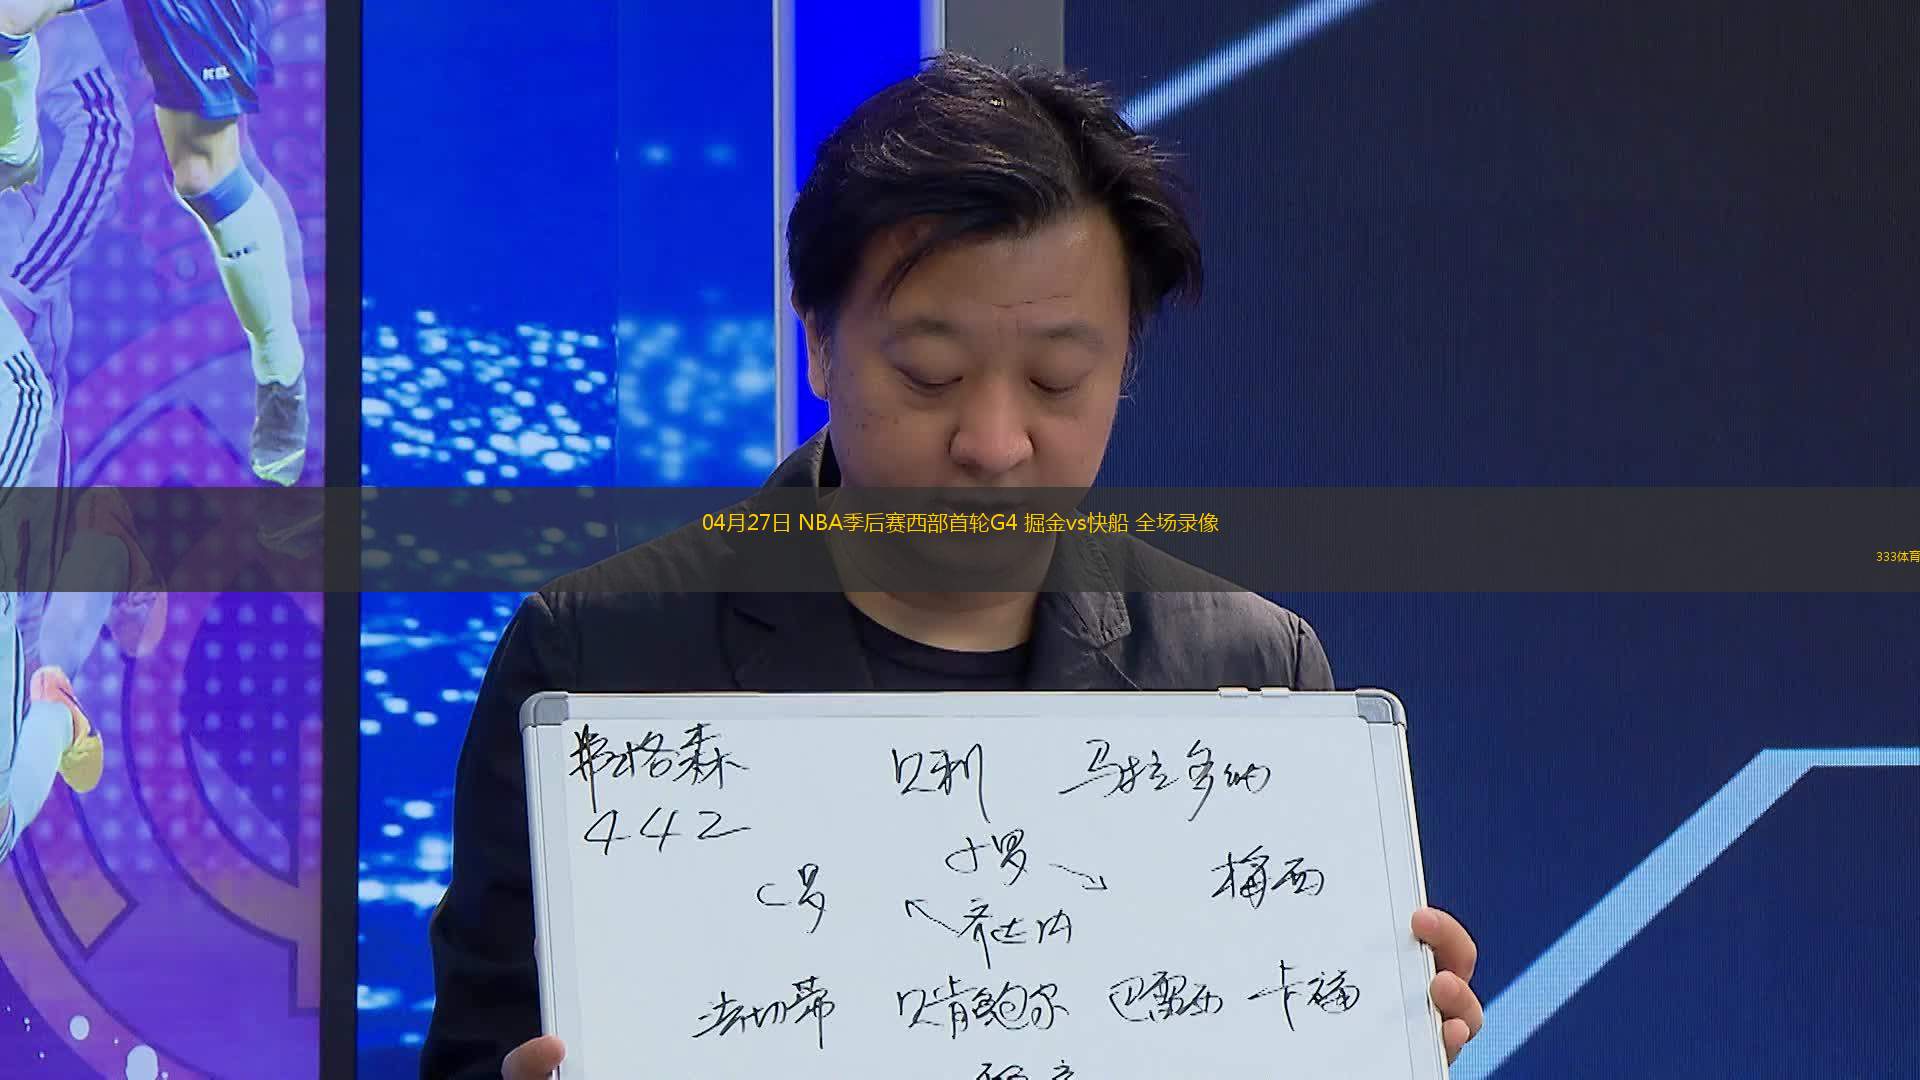 04月27日 NBA季后赛西部首轮G4 掘金vs快船 全场录像
333体育
弗格森 贝利 马拉多纳
442
小罗
C罗 梅西
齐达内
法切蒂 贝肯鲍尔 巴雷西 卡福